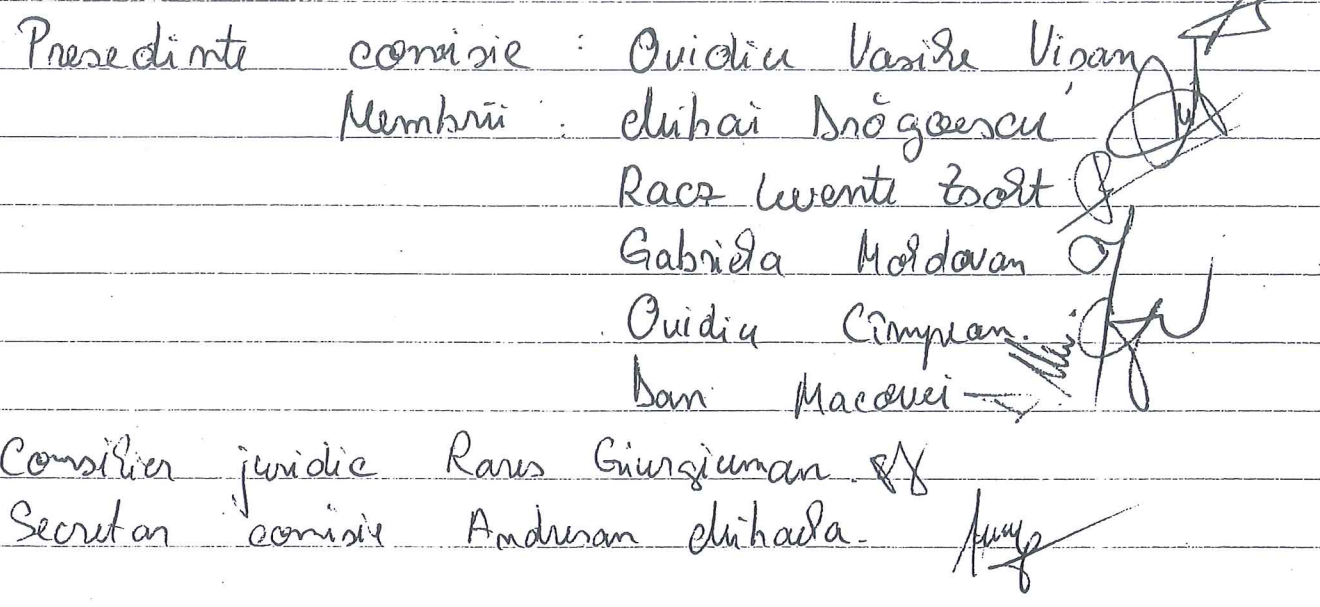 Presedinte comisie : Ovidiu Vasile Visan
Membrii : Mihai Drăgoescu
Racz Levente Zsolt
Gabriela Moldovan
Ovidiu Cîmpean
Dan Macovei
Consilier juridic Rares Giurgiuman
Secretar comisie Andresan Mihaela